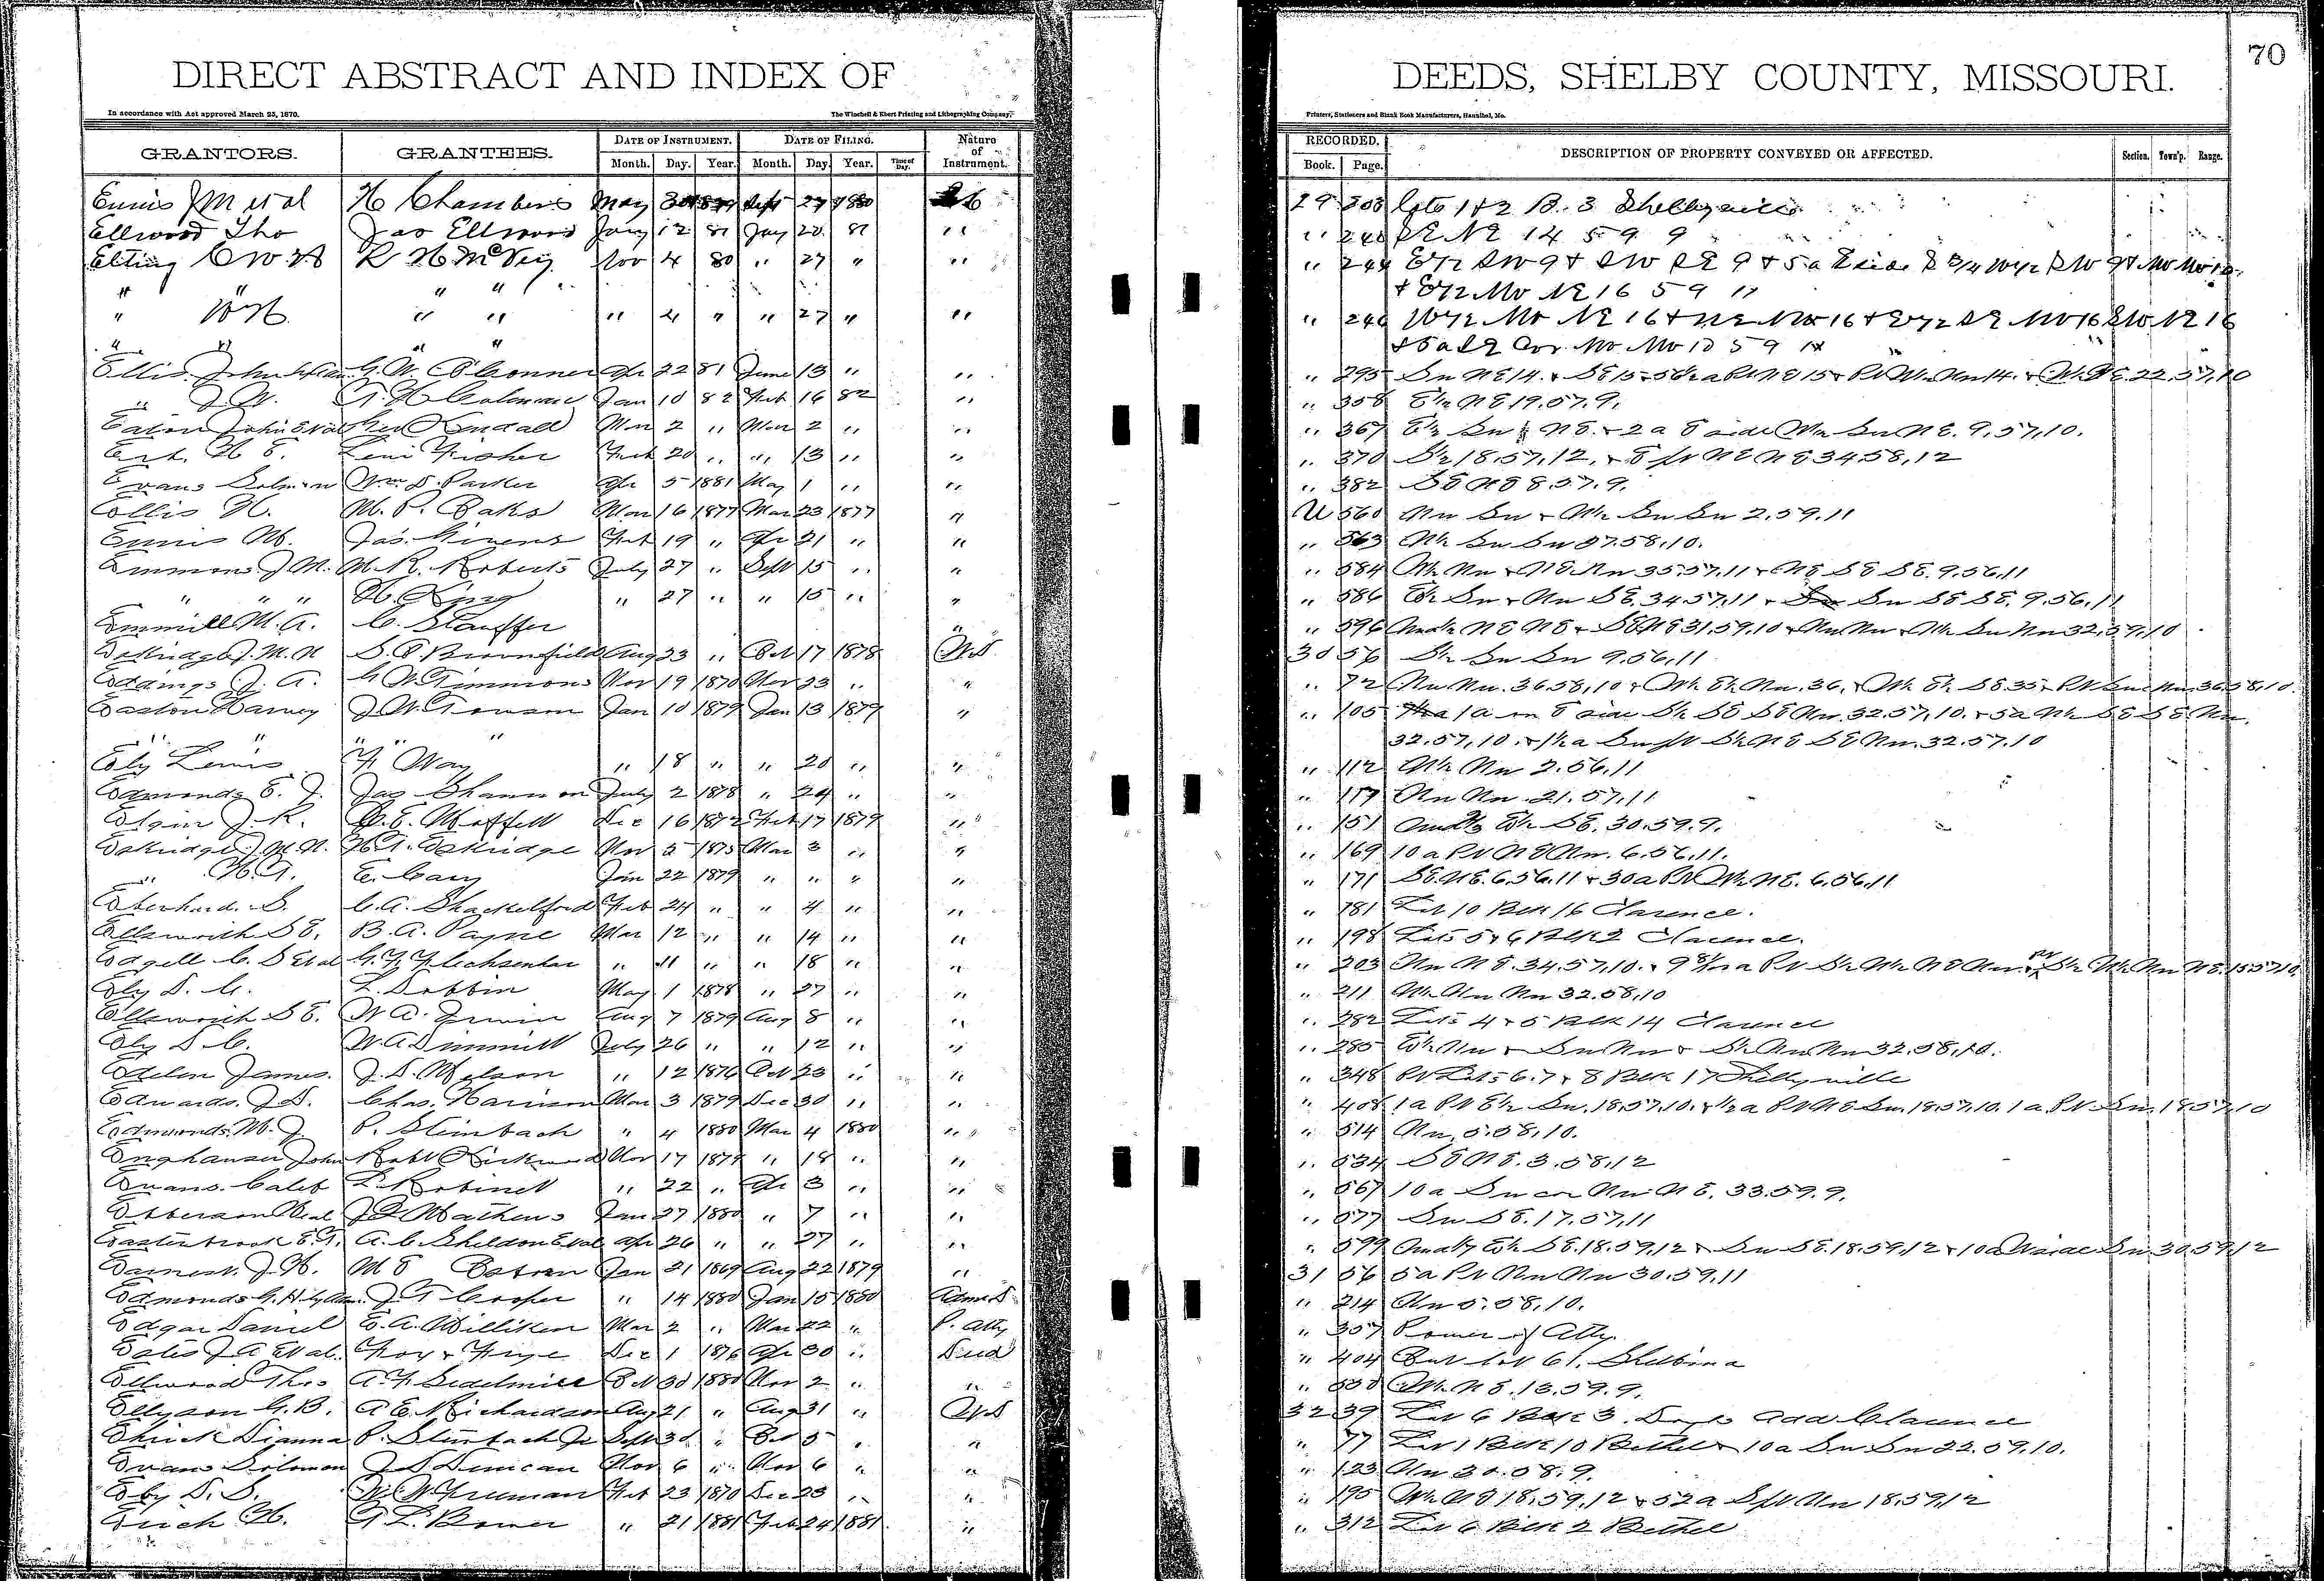 70
DIRECT ABSTRACT AND INDEX OF DEEDS, SHELBY COUNTY, MISSOURI.
In accordance with Act approved March 25, 1870. The Winchell & Ebert Printing and Lithographing Company, Printers, Stationers and Blank Book Manufacturers, Hannibal, Mo.
GRANTORS. GRANTEES. DATE OF INSTRUMENT. DATE OF FILING. Nature of Instrument. RECORDED. DESCRIPTION OF PROPERTY CONVEYED OR AFFECTED. Section. Town'p. Range.
Month. Day. Year. Month. Day. Year. Time of Day. Book. Page.
Ennis J M et al H Chambers May 1880 29 lots 1 & 2 B. 3 Shelbyville
Ellwood Tho Jas Ellwood Jany 12 81 Jay 20 81 " " 240 SE NE 14 59 9
Elting C W H R H McVey Nov 4 80 " 27 " " " 244 E 1/2 SW 9 & SW SE 9 & 5a
" " " " & E 1/2 NW NE 16 59 11
" W H " " " 4 " " 27 " " " 246 W 1/2 NW NE 16 & NE NW 16 & E 1/2 SE NW 16 SW NE 16
" " " " & 5a SE Cor. NW NW 10 59
Ellis John G. W. O'Conner Apr 22 81 June 13 " " " 295 Sw NE 14 & SE 15 22.57,10
" J. W. Coleman Jan 10 82 Feb 16 82 " " 358 E 1/2 NE 19.57.9.
Eaton John Et al Kendall Mar 2 " Mar 2 " " " 367 E 1/2 Sw NE. & 2 a E side Sw NE. 9,57,10.
H. E. Levi Fisher Feb 20 " " 13 " " " 370 18.57.12, & NE NE 34.58,12
Evans Solmon Wm D. Parker Apr 5 1881 May 1 " " " 382 SE NE 8.57.9.
Ellis H. M. P. Oaks Mar 16 1877 Mar 23 1877 " U 560 Nw Sw & W 1/2 Sw Sw 2.59.11
Ennis M. Jas. Givens Feb 19 " Apr 21 " " " 563 W 1/2 Sw Sw 27.58.10.
Emmons J M. M. R. Roberts July 27 " Sept 15 " " " 584 W 1/2 Nw & NE Nw 35.57,11 & NE SE SE. 9.56,11
" " " H. King " 27 " " 15 " " " 586 E 1/2 Sw & Nw SE. 34.57,11 & Sw SE SE. 9.56,11
Emmill M. A. C. Stauffer " " 596 NE NE & SE NE 31.59.10 & Nw Nw & W 1/2 Sw Nw 32,59,10
Eskridge J. M. N S. E. Brownfield Aug 23 " Oct 17 1878 W.D. 30 56 S 1/2 Sw Sw 9.56,11
Eddings J. A. G W Timmons Nov 19 1870 Nov 23 " " " 72 Nw Nw. 36.58,10 & W 1/2 E 1/2 Nw. 36, & W 1/2 E 1/2 SE. 35 & Pt Nw 36.58,10.
Easton Harvey J. W. Towson Jan 10 1879 Jan 13 1879 " " 105 1a on E side S 1/2 SE SE Nw. 32.57,10. & 5a N 1/2 SE SE Nw.
" " " " 32.57,10. & 1/2 a Sw pt S 1/2 NE SE Nw. 32.57.10
Ely Lewis Way " 18 " " 20 " " " 112 W 1/2 Nw 2.56.11
Edmonds E. J. Jas Shannon July 2 1878 " 24 " " " 117 Nw Nw. 21.57,11
Elgin J. R. B. E. Moffett Dec 16 1872 Feb 17 1879 " " 151 E 1/2 SE. 30.59.9.
Eskridge J. M. N. H. T. Eskridge Nov 5 1875 Mar 3 " " " 169 10 a Pt NE Nw. 6.56,11.
" H. T. E. Cary Jan 22 1879 " " " " " 171 SE. NE. 6.56.11 & 30 a Pt W 1/2 NE. 6.56,11
Eberhard. S. C. A. Shackelford Feb 24 " " 4 " " " 181 Lot 10 Blk 16 Clarence.
Ellsworth S E. B. A. Payne Mar 12 " " 14 " " " 198 Lots 5 & 6 Blk 2 Clarence.
Edgell C. S Et al " 11 " " 18 " " " 203 Nw NE. 34.57,10. & 15.57,10.
Ely D. C. L. Dobbin May 1 1878 " 27 " " " 211 W 1/2 Nw Nw 32.58,10
Ellsworth S E. W A. Irwin Aug 7 1879 Aug 8 " " " 282 Lots 4 & 5 Blk 14 Clarence
Ely D C. W. A Dimmitt July 26 " " 12 " " " 285 E 1/2 Nw & Sw Nw & S 1/2 Nw Nw 32.58,10.
Edelen James. J. D. Melson " 12 1876 Oct 23 " " " 348 Pt Lots 6.7 & 8 Blk 17 Shelbyville
Edwards. J D. Chas. Harrison Mar 3 1879 Dec 30 " " " 408 1 a Pt E 1/2 Sw. 18.57,10. & 1/2 a Pt NE Sw. 18.57,10. 1 a. Pt Sw. 18.57,10
Edmonds, M. J. P. Steinbach " 4 1880 Mar 4 1880 " " 514 Nw. 5.58,10.
Enghauser John Robt Kirkwood Nov 17 1879 " 18 " " " 534 SE NE. 3.58,12
Evans. Caleb L. Robinet " 22 " Apr 3 " " " 567 10 a Sw cor Nw NE. 33.59.9.
J. Mathews Jan 27 1880 " 7 " " " 577 Sw SE. 17.57,11
Easterbrook E. T. A. C. Sheldon Et al Apr 26 " " 27 " " " 599 E 1/2 SE. 18.59,12 & Sw SE. 18.59,12 & 10 a W side Sw 30.59,12
Earnest. J. H. M E Jan 21 1869 Aug 22 1879 " 31 56 5 a Pt Nw Nw 30.59,11
Edmonds G. H. by Adm. J T Cooper " 14 1880 Jan 15 1880 Adms D. " 214 Nw 5.58,10.
Edgar Daniel E. A. Milliken Mar 2 " Mar 22 " P. Atty " 307 Power of Atty.
Eates J A Et al. Foy & Frye Dec 1 1876 Apr 30 " Deed " 404 Out lot 61. Shelbina
Ellwood Thos A. F. Sidelmill Oct 30 1880 Nov 2 " " " 530 W 1/2 NE. 13.59.9.
Ellyson G. B. A E. Richardson Aug 21 " Aug 31 " W.D 32 39 Lot 6 Blk 3. Add Clarence
Dianna P. Steinbach Jr Sept 30 " Oct 5 " " " 77 Lot 1 Blk 10 Bethel & 10 a Sw Sw 22.59.10.
Evans Solomon J. S Duncan Nov 6 " Nov 6 " " " 123 Nw 30.58.9.
Eby D. S. W. W Freeman Feb 23 1870 Dec 23 " " " 195 W 1/2 NE 18.59,12 & 52 a S pt Nw 18.59,12
Erich H. G L. Bower " 21 1881 Feb 24 1881 " " 312 Lot 6 Blk 2 Bethel